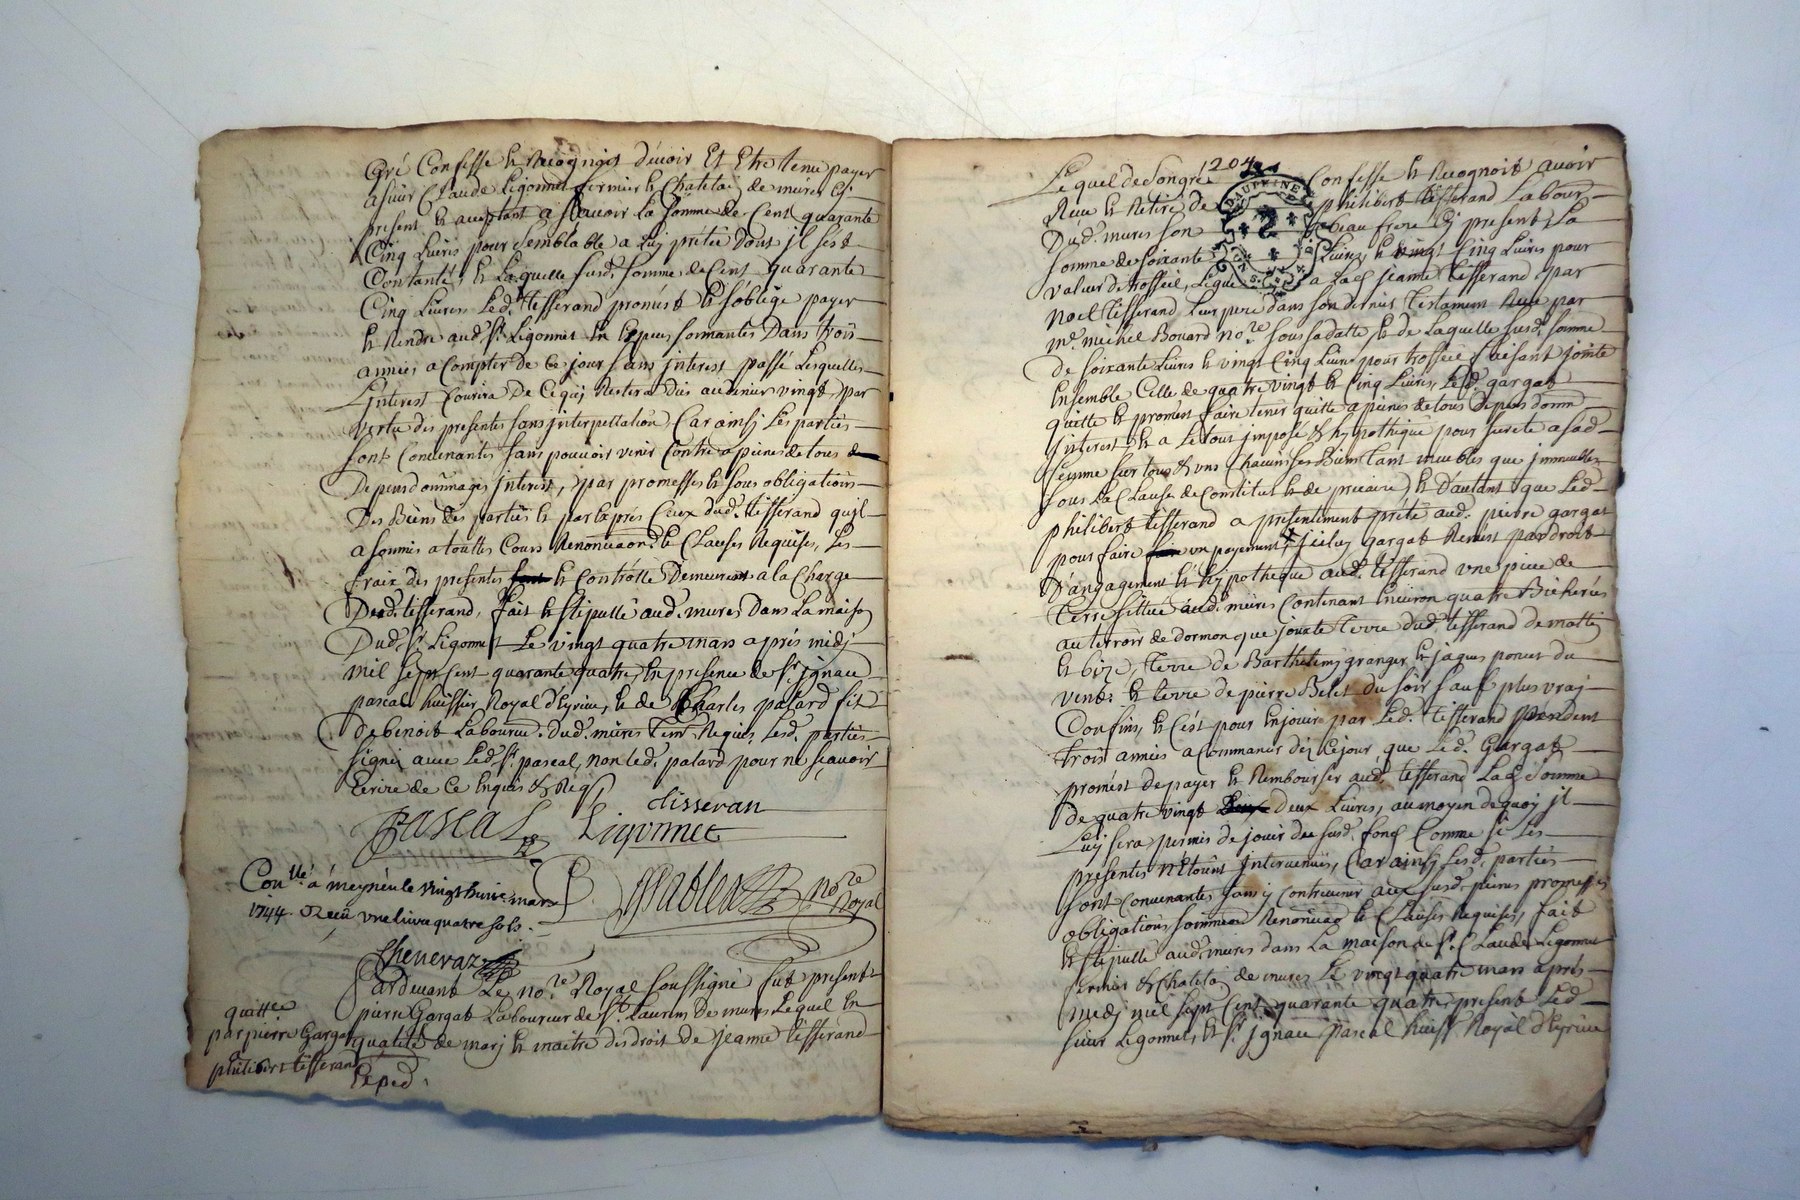 Gré Confesse et Recognoit devoir Et Etre tenu payer
a sieur Claude Ligonnet fermier et Chatelai de mures cy
present et acceptant a sçavoir La somme de Cent quarante
Cinq Livres pour semblable a Luy prétée dont jl s'est
Contanté, et Laquelle susd. somme de Cent quarante
Cinq Livres Led. tisserand promést et s'oblige payer
et Rendre aud. Sr. Ligonnet En Espéces sonnantes Dans trois
années a Compter de Ce jour sans jnterest passé Lesquelles
L'jnterest Courira De Ce quj Restera Dús au denier vingt par
vertu des presentes sans jnterpellation, Car ainsj Les parties
sont Convenantes sans pouvoir venir Contre a peines de tous
Depens dommages jnterest, par promesses et sous obligations
Des Biens des parties et par Exprés Ceux dud. tisserand qu'jl
a soumis a touttes Cours Renonciaon. et Clauses Requises, Les
fraix des presentes et Contrôlle Demeurant a la Charge
Dud. tisserand, fait et stipullé aud. mures Dans La maison
Dud. Sr. Ligonnet Le vingt quatre mars aprés midj
mil sept Cent quarante quatre, En presence de Sr. jgnace
pascal huissier Royal d'Eyrieu, et de Charles palard fils
de benoit Laboureur dud. mures Tem. Requis, Lesd. parties
signés avec Led. Sr. pascal, non led. palard pour ne sçavoir
Ecrire de Ce Enquis & Req.
tisseran
PASCAL Ligonnet
Conllé. á meyzieu le vingt huit mars
1744. Reçû une livre quatre sols.
nore
Royal
Chenevaz
pardevant Le nore. Royal soussigné fut present
pierre Gargat Laboureur de St. Laurent De mures Lequel En
qualité de marj et maitre des droit de jeanne tisserand
quittce
par pierre Gargat
philibert tisserand
Exped.
1204
DAUPHINE
Lequel de son gré Confesse et Recognoit avoir
Reçu et Retiré de philibert tisserand Labour
Dud. mures son beau frere cy present La
somme de soixante Livres et vingt Cinq Livres pour
valeur de trosseil, Legué a Lad. jeanne tisserand par
noel tisserand Leur pere dans son dernier testament Reçu par
me. michel Bouard nore. sous sa datte, et de Laquelle susd. somme
de soixante Livres et vingt Cinq Livres pour trosseil faisant jointe
Ensemble Celle de quatre vingt et Cinq Livres, Led. gargat
quitte et promést faire tenir quitte a peines de tous depens domm
jnterest et a Le tout jmposé & hypothéqué pour sureté a sad.
femme sur tous & uns Chacuns ses Biens tant meubles que jmmeubles
sous La Clause de Constitut et de précaire, et D'autant que Led.
philibert tisserand a presentement prété aud. pierre gargat
pour faire un payement jceluy gargat Remést par droit
D'angagement et hypotheque aud. tisserand une piece de
Terre sittuée aud. mures Contenant Environ quatre Bicherées
au terroir de dormon que jouxte terre dud. tisserand de matin
et bize, Terre de Barthelemj granger et jaques ponet du
vent, et terre de pierre Belet du soir sauf plus vray
Confins, et C'est pour En jouir par Led. tisserand pendent
trois années a Commancer dés Cejour que Led. Gargat
promést de payer et Rembourser aud. tisserand Lad. somme
de quatre vingt deux Livres, au moyen de quoy jl
Luy sera permis de jouir du susd. fond Comme si Les
presentes N'étoint jntervenües, Car ainsj Lesd. parties
sont Convenantes sans y Contrevenir aux susd. peines promesses
obligations soumissions Renonciaon et Clauses Requises, fait
et stipullé aud. mures dans La maison de Sr. Claude Ligonnet
fermier & Chatelai de mures Le vingt quatre mars aprés
midj mil sept Cent quarante quatre, present Led.
sieur Ligonnet, et Sr. jgnace pascal huiss Royal d'Eyrieu